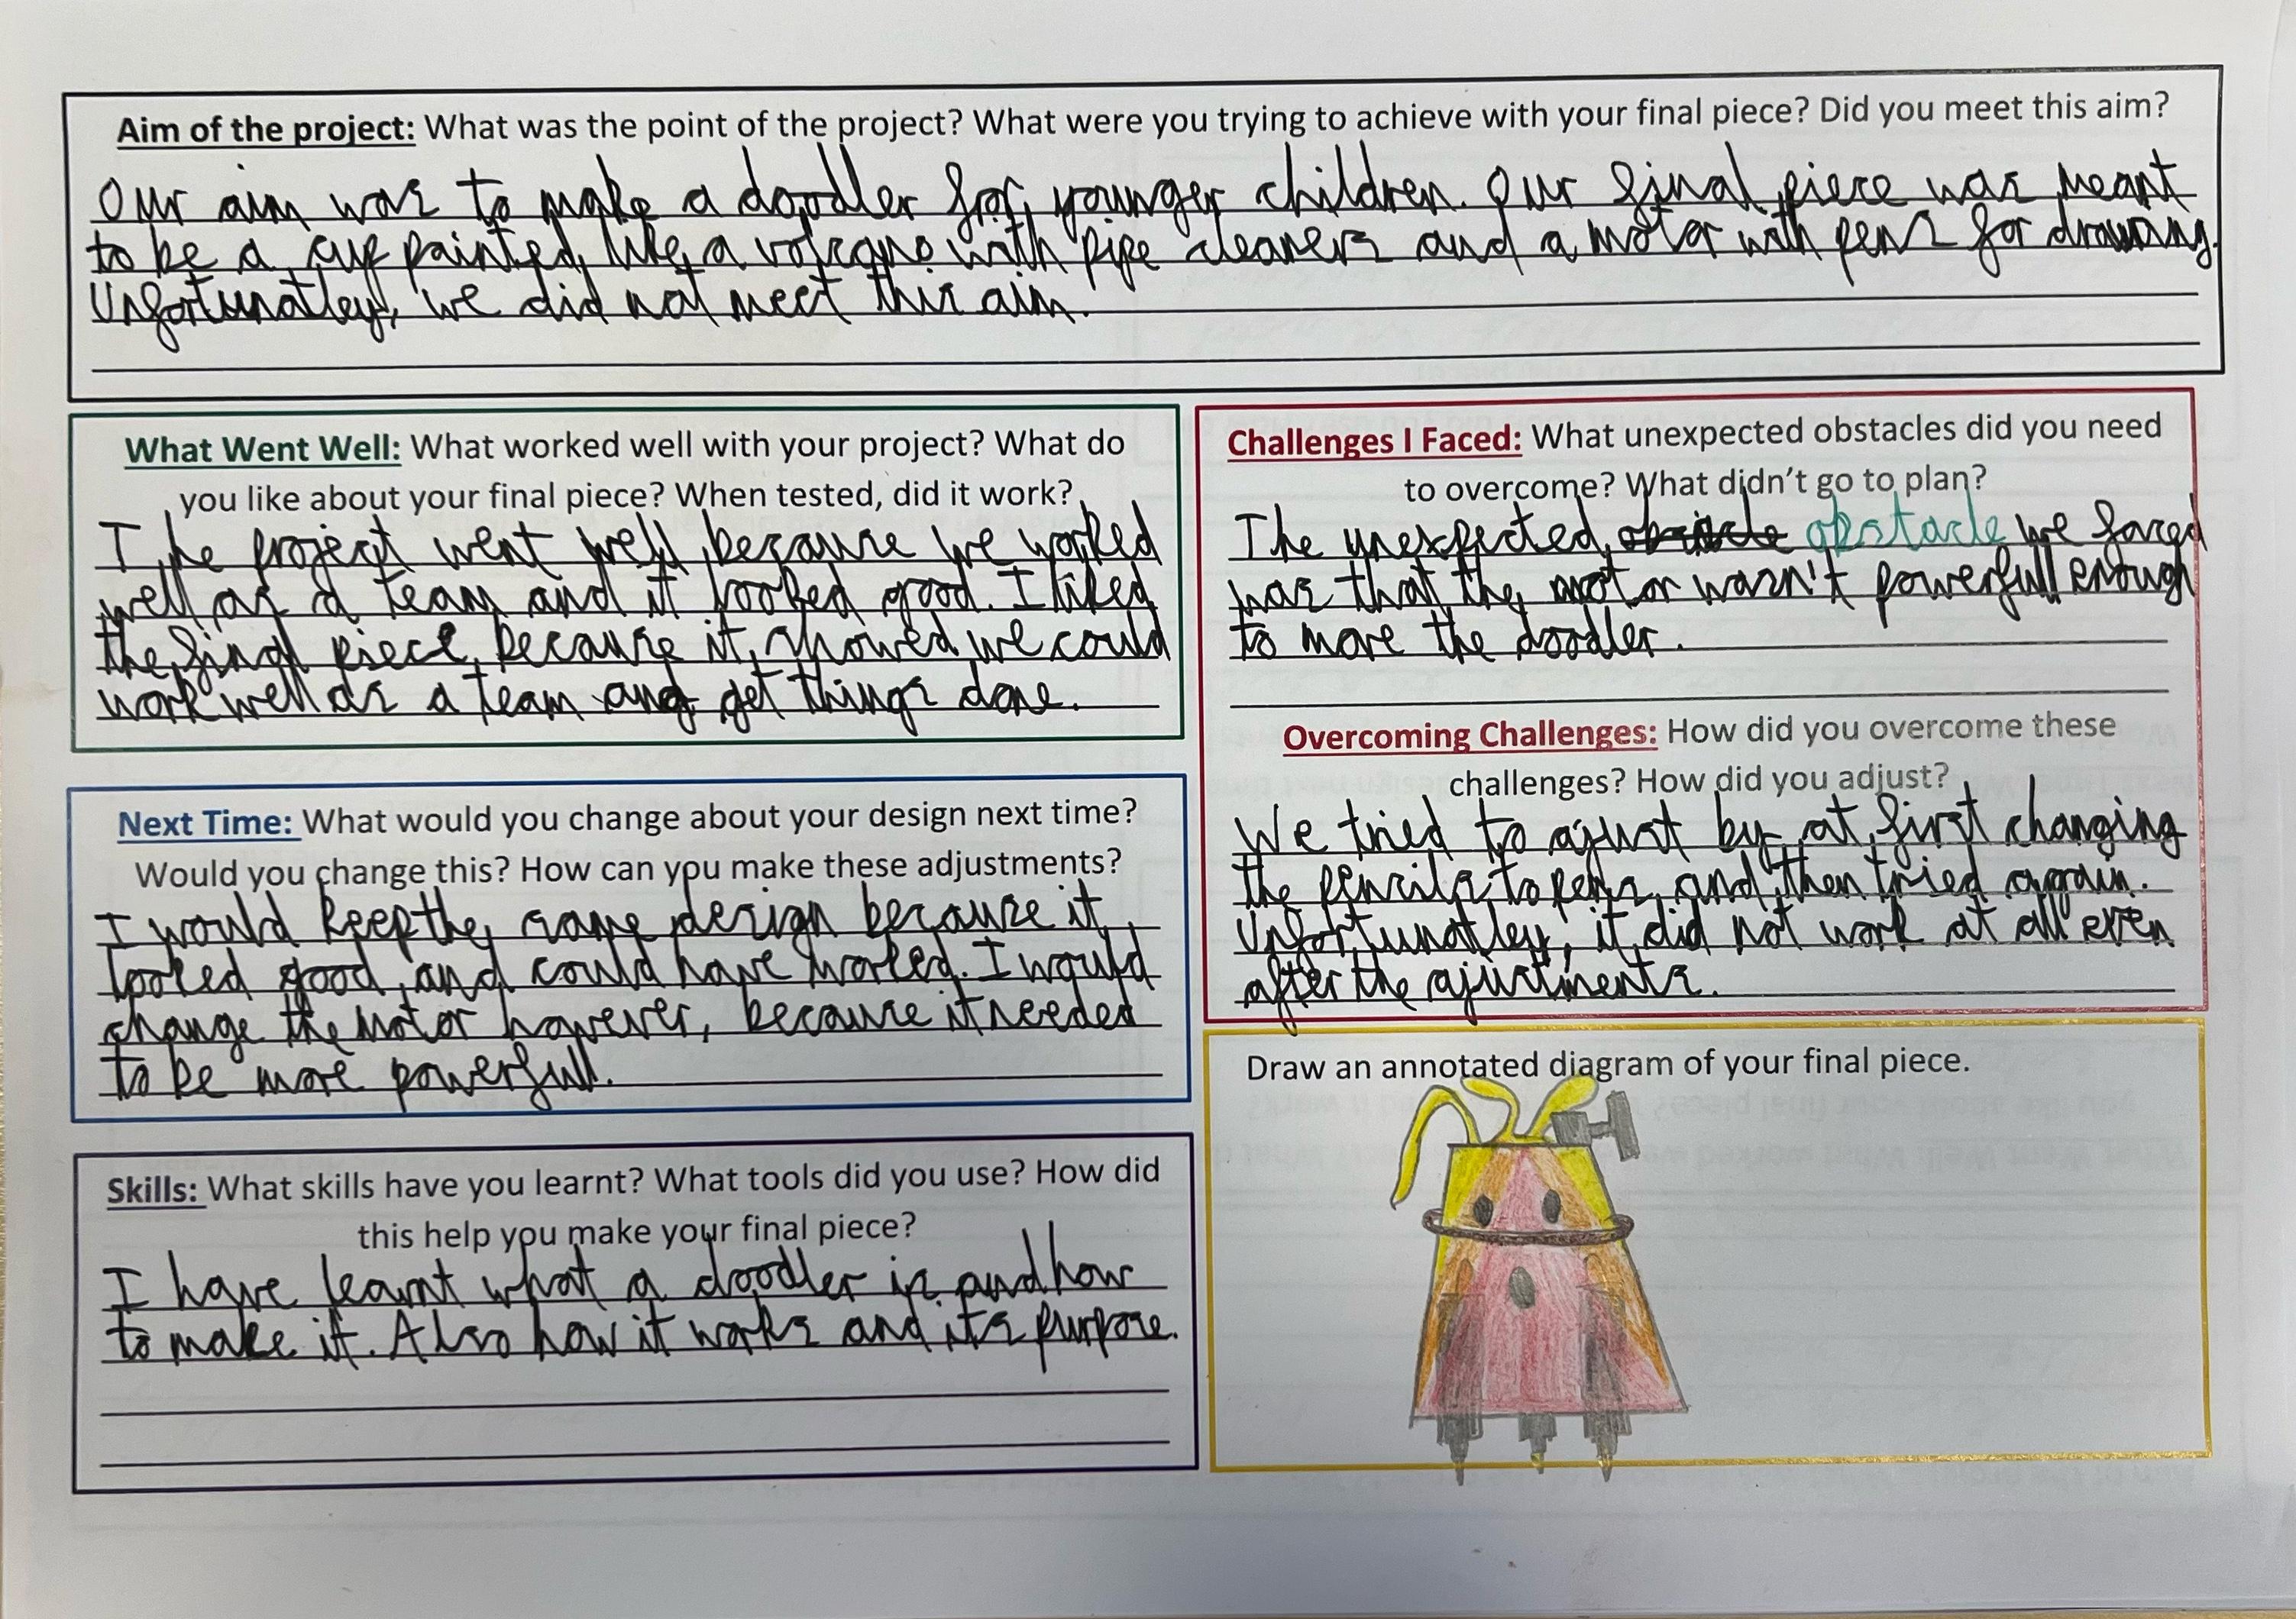 Aim of the project: What was the point of the project? What were you trying to achieve with your final piece? Did you meet this aim?
Our aim was to make a doodler for younger children. Our final piece was meant
to be a cup painted like a volcano with pipe cleaners and a motor with pens for drawing.
Unfortunatley, we did not meet this aim.
What Went Well: What worked well with your project? What do
you like about your final piece? When tested, did it work?
The project went well because we worked
well as a team and it looked good. I liked
the final piece because it showed we could
work well as a team and get things done.
Next Time: What would you change about your design next time?
Would you change this? How can you make these adjustments?
I would keep the same design because it
looked good and could have worked. I would
change the motor however, because it needed
to be more powerfull.
Skills: What skills have you learnt? What tools did you use? How did
this help you make your final piece?
I have learnt what a doodler is and how
to make it. Also how it works and its purpose.
Challenges I Faced: What unexpected obstacles did you need
to overcome? What didn't go to plan?
The unexpected obstacle we faced
was that the motor wasn't powerfull enough
to move the doodler.
Overcoming Challenges: How did you overcome these
challenges? How did you adjust?
We tried to ajust by at first changing
the pencils to pens and then tried again.
Unfortunatley, it did not work at all even
after the ajustments.
Draw an annotated diagram of your final piece.